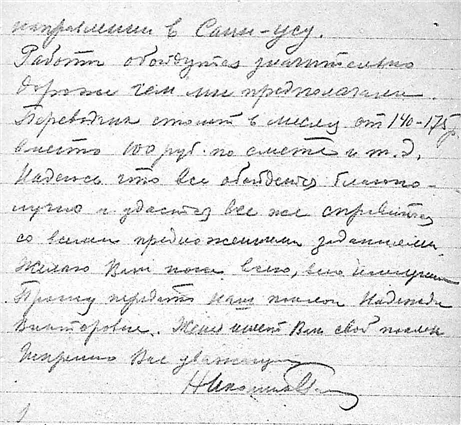 направлении в Саин-усу.
Работы обойдутся значительно
дороже чем мы предполагали
Переводчик стоит в месяц от 140-175 р
вместо 100 руб. по смете и т.д.
Надеюсь что все обойдется благопо-
лучно и удастся все же справиться
со всеми предложенными заданиями.
Желаю Вам пока всего, всего
Прошу передать наш поклон Надежде
Викторовне. Жена шлет Вам свой поклон
Искренно Вас уважающий